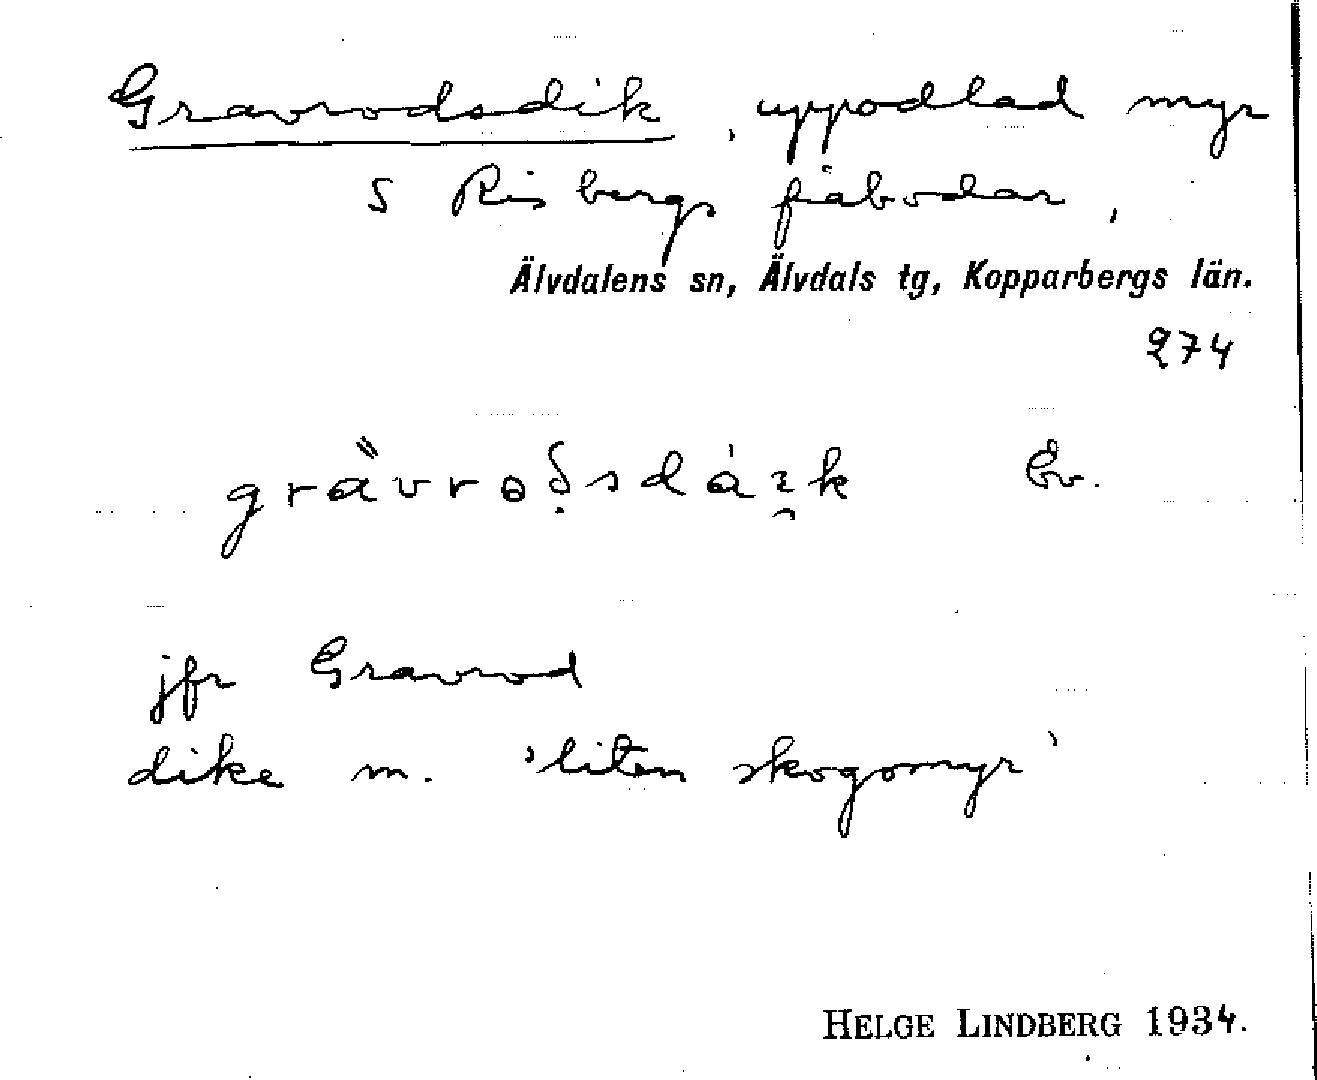 Gravrodsdik, uppodlad myr
S Risbergs fäbodar,
Älvdalens sn, Älvdals tg, Kopparbergs län.
274
grävroδ̣sdáızk Ev.
jfr Gravrod
dike m. 'liten skogsmyr'
HELGE LINDBERG 1934.